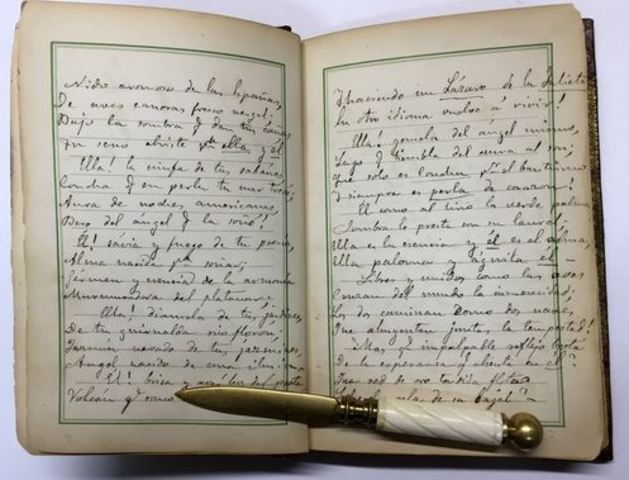 Nido amoroso de las
De aves canoras fresco vergel;
Bajo la sombra q dan tus cañas
Tu seno abriste pa ella y él
Ella! la ninfa de tus sabanas,
Concha q en perla tu mar trocó;
Aura de noches americanas,
Beso del ángel q la soñó!
Él! sávia y fuego de tu poesia,
Alma nacida pa soñar,
Gérmen y esencia de la armonia
Murmuradora del platanar;
Ella! diamela de tus jardines,
De tu guirnalda rica florón,
Jazmin nevado de tus jazmines,
Angel nacido de una
Él! brisa y
Volcán qe
Y haciendo un Lázaro de la Julieta
En otro idioma
Ella! gemela del ángel mismo,
Lago q tiembla del aura al son;
Que solo es concha pa el bautismo
Y siempre es perla de corazon!
El como al lirio la verde palma
Sombra le presta con su laurel;
Ella es la esencia y él es el alma,
Ella paloma y águila él –
Libres y unidos como las aves
Cruzan del mundo la inmensidad;
Los dos caminan como dos naves,
Que ahuyentan juntas la tempestad!
Mas q impalpable reflejo
De la esperanza q alienta en él?
red de oro tendida flota
vela de su bagel?